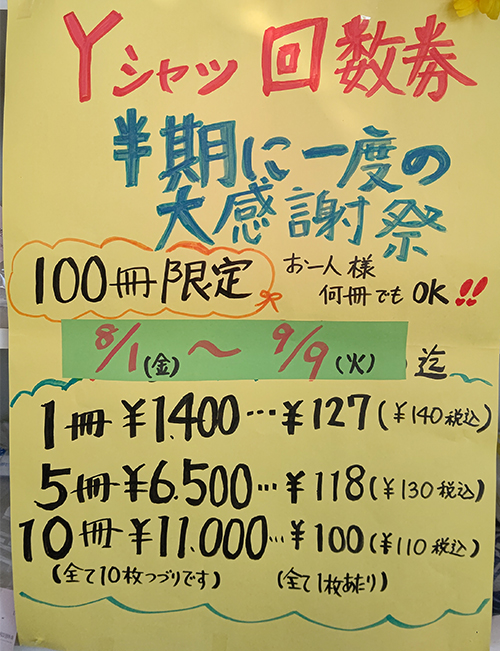 Yシャツ 回数券
半期に一度の
大感謝祭
100冊限定 お一人様
何冊でもOK!!
8/1(金)～9/9(火)迄
1冊¥1.400…¥127(¥140税込)
5冊¥6.500…¥118(¥130税込)
10冊¥11.000…¥100(¥110税込)
(全て10枚つづりです) (全て1枚あたり)